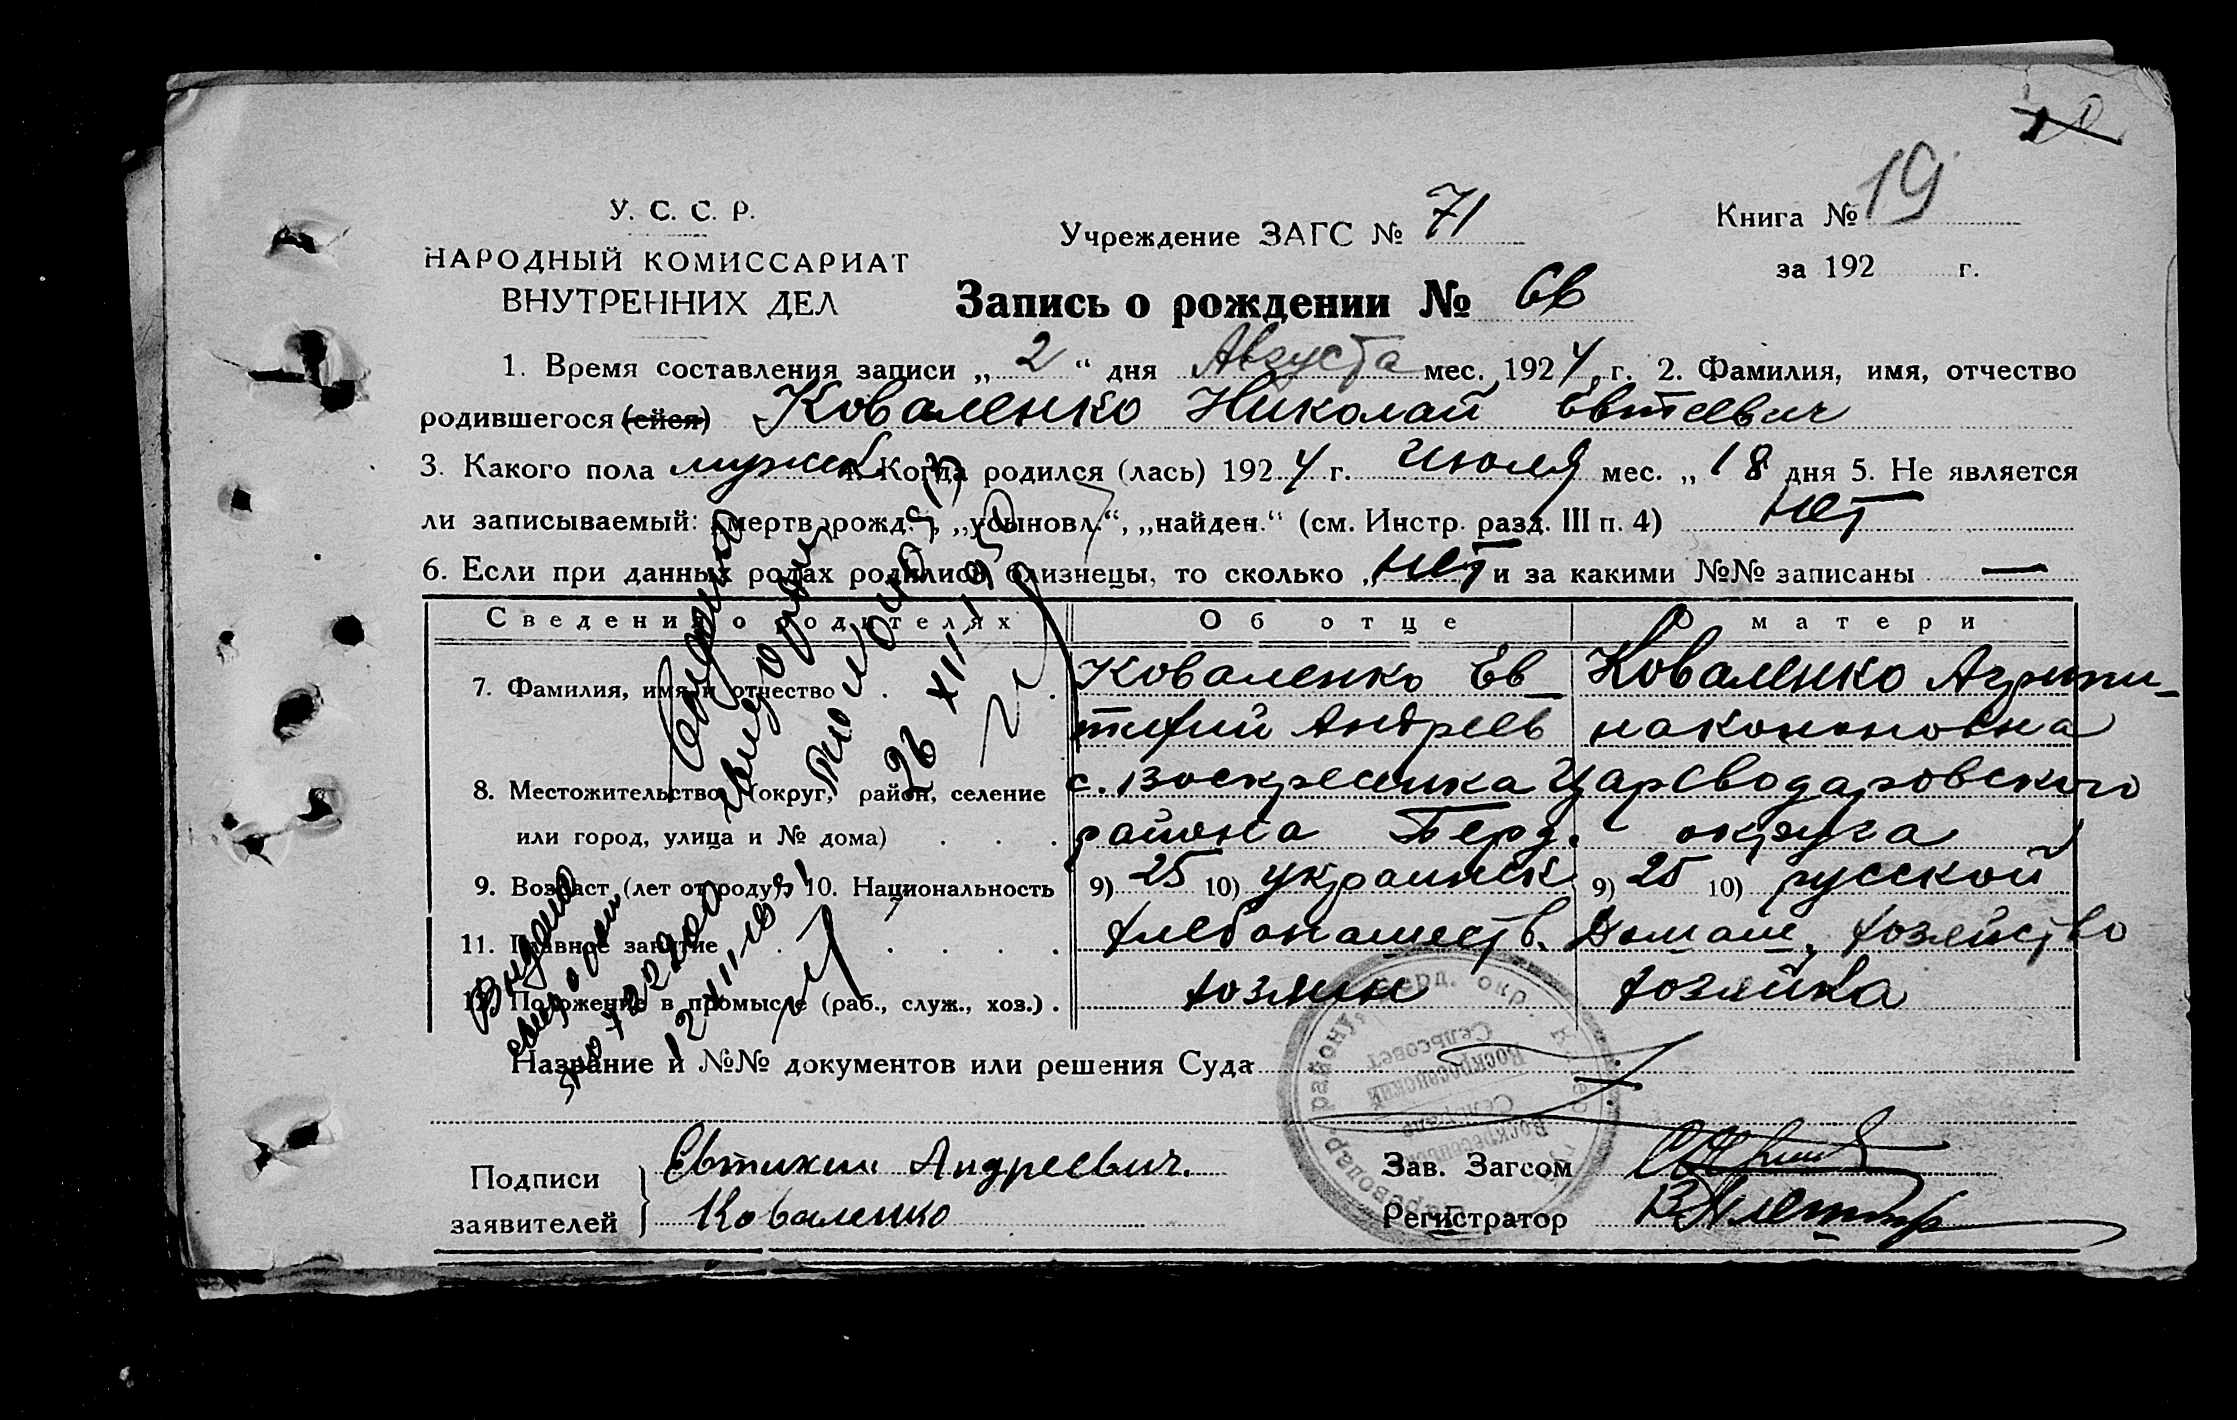 У. С. С. Р.
НАРОДНЫЙ КОМИССАРИАТ
ВНУТРЕННИХ ДЕЛ
Учреждение ЗАГС № 71
Книга № 19
за 192 г.
Запись о рождении №
1. Время составления записи „ 2 “ дня Августа мес. 1924 г. 2. Фамилия, имя, отчество
родившегося (ейся) Коваленко Николай Евтеевич
3. Какого пола мужск 4. Когда родился (лась) 1924 г. июля мес. „ 18 дня 5. Не является
ли записываемый: „мертворожд.“, „усыновл.“, „найден.“ (см. Инстр. разд. III п. 4) нет
6. Если при данных родах родились близнецы, то сколько „ нет и за какими №№ записаны —
Сведения о родителях Об отце О матери
7. Фамилия, имя и отчество . . Коваленко Ев- Коваленко Агрипи-
тифий Андреев на Кононовна
8. Местожительство (округ, район, селение с. Воскресенка Царсводаровского
или город, улица и № дома) . . . района Берд. округа
9. Возраст (лет от роду) 10. Национальность 9) 25 10) украинск 9) 25 10) русской
11. Главное занятие . . . . . хлебопашеств. Домаш. хозяйство
12. Положение в промысле (раб., служ., хоз.) . хозяин хозяйка
Название и №№ документов или решения Суда
Подписи
заявителей
Евтихий Андреевич.
Коваленко
Зав. Загсом
Регистратор
Выдано
12 XII-18
26 XII 195
Воскресенский
Сельсовет